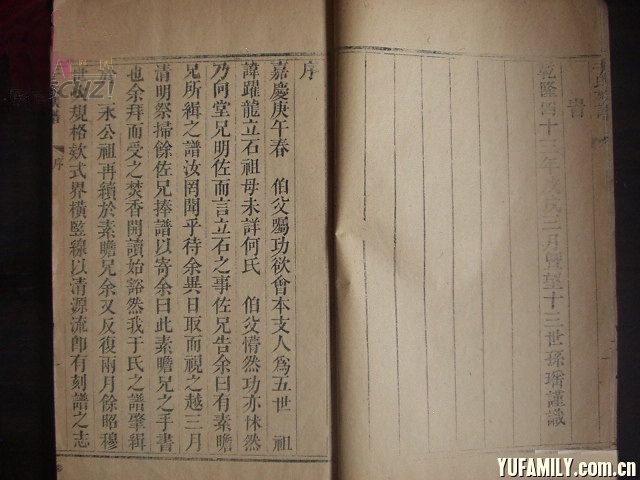 乾隆四十三年 三月 望十三世孫璠謹識
序
嘉慶庚午春 伯父囑功欲會本支人為五世 祖
諱躍龍立石祖母未詳何氏 伯父懵然功亦怵然
乃向堂兄明佐而言立石之事佐兄告余曰有素瞻
兄所緝之譜汝罔聞乎待余異日取而視之越三月
清明祭掃餘佐兄捧譜以寄余曰此素瞻兄之手書
也余拜而受之焚香開讀始豁然我于氏之譜肇緝
永公祖再續於素瞻兄余又反復兩月餘昭穆
規格欸式界橫豎線以清源流即有刻譜之志
序
YUFAMILY.com.cn